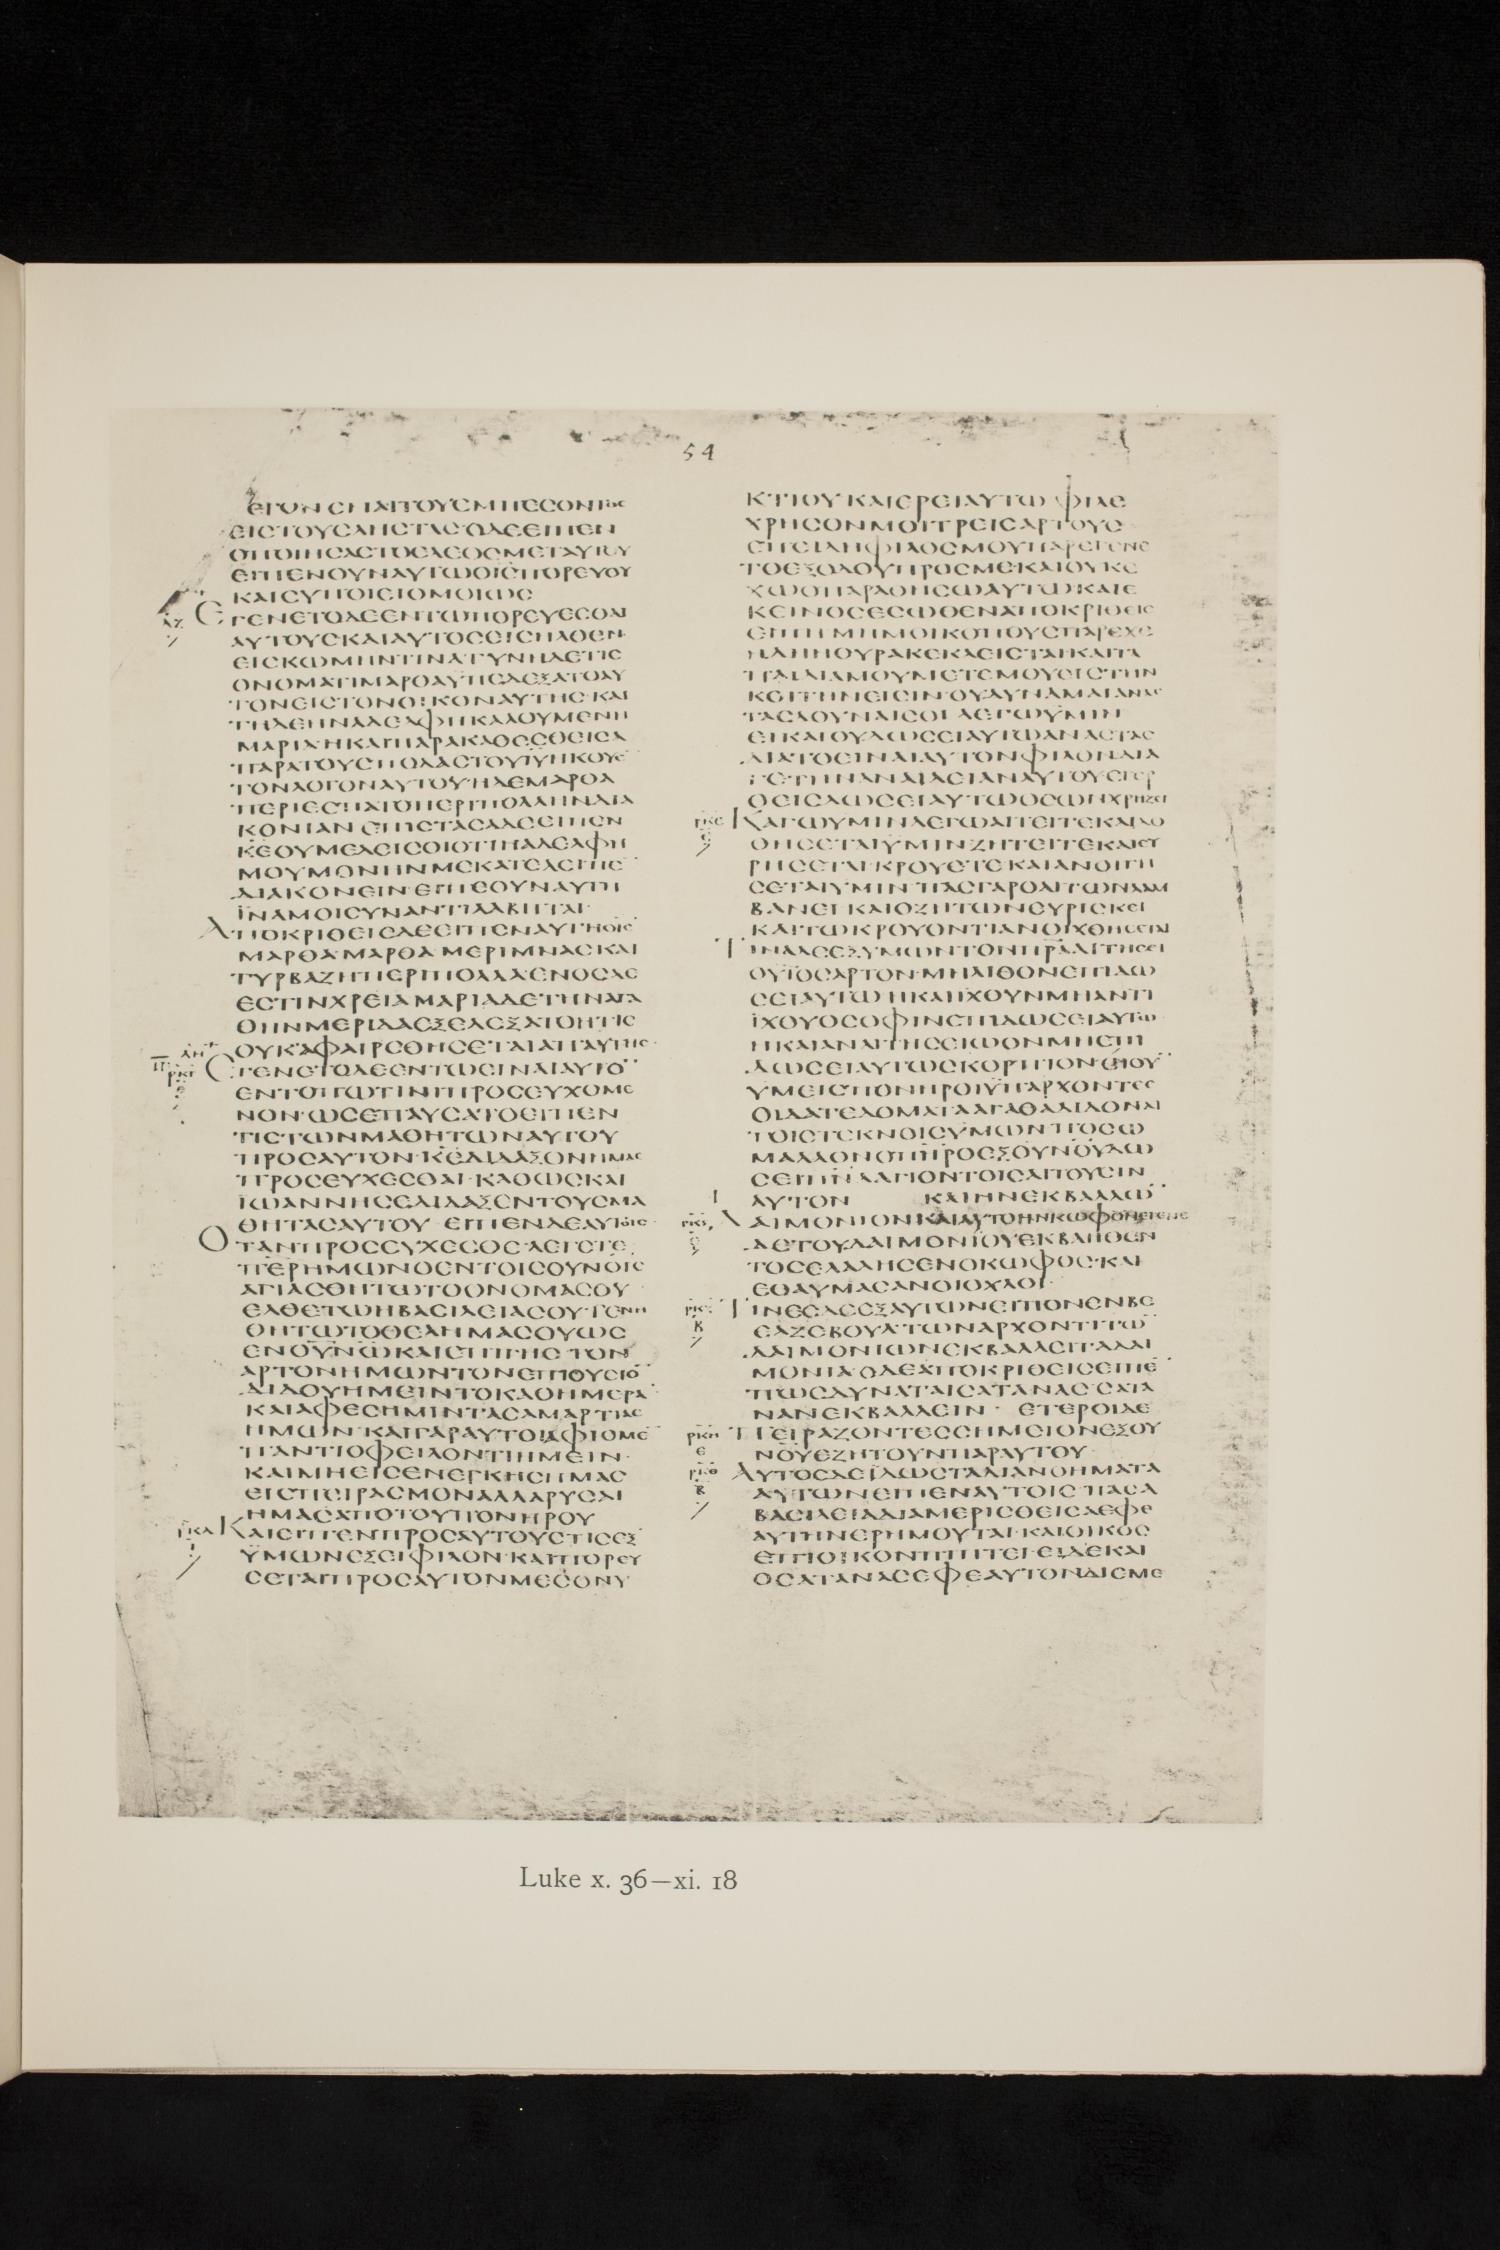 54
ΓΕΓΟΝΕΝΑΙΤΟΥΕΜΠΕϹΟΝΤΟϹ
ΕΙϹΤΟΥϹΛΗϹΤΑϹ·ΟΔΕΕΙΠΕΝ
ΟΠΟΙΗϹΑϹΤΟΕΛΕΟϹΜΕΤΑΥΤΟΥ
ΕΙΠΕΝΟΥΝΑΥΤΩΟΙϹΠΟΡΕΥΟΥ
ΚΑΙϹΥΠΟΙΕΙΟΜΟΙΩϹ
ΕΓΕΝΕΤΟΔΕΕΝΤΩΠΟΡΕΥΕϹΘΑΙ
ΑΥΤΟΥϹΚΑΙΑΥΤΟϹΕΙϹΗΛΘΕΝ
ΕΙϹΚΩΜΗΝΤΙΝΑ·ΓΥΝΗΔΕΤΙϹ
ΟΝΟΜΑΤΙΜΑΡΘΑΥΠΕΔΕΞΑΤΟΑΥ
ΤΟΝΕΙϹΤΟΝΟΙΚΟΝΑΥΤΗϹ·ΚΑΙ
ΤΗΔΕΗΝΑΔΕΛΦΗΚΑΛΟΥΜΕΝΗ
ΜΑΡΙΑ·ΗΚΑΙΠΑΡΑΚΑΘΕϹΘΕΙϹΑ
ΠΑΡΑΤΟΥϹΠΟΔΑϹΤΟΥΙΥΗΚΟΥΕ
ΤΟΝΛΟΓΟΝΑΥΤΟΥ·ΗΔΕΜΑΡΘΑ
ΠΕΡΙΕϹΠΑΤΟΠΕΡΙΠΟΛΛΗΝΔΙΑ
ΚΟΝΙΑΝ ΕΠΙϹΤΑϹΑΔΕΕΙΠΕΝ
ΚΕΟΥΜΕΛΕΙϹΟΙΟΤΙΗΑΔΕΛΦΗ
ΜΟΥΜΟΝΗΝΜΕΚΑΤΕΛΕΙΠΕ
ΔΙΑΚΟΝΕΙΝ·ΕΙΠΕΟΥΝΑΥΤΗ
ΙΝΑΜΟΙϹΥΝΑΝΤΙΛΑΒΗΤΑΙ·
ΑΠΟΚΡΙΘΕΙϹΔΕΕΙΠΕΝΑΥΤΗΟΙϹ
ΜΑΡΘΑ·ΜΑΡΘΑ·ΜΕΡΙΜΝΑϹΚΑΙ
ΤΥΡΒΑΖΗΠΕΡΙΠΟΛΛΑΕΝΟϹΔΕ
ΕϹΤΙΝΧΡΕΙΑΜΑΡΙΑΔΕΤΗΝΑΓΑ
ΘΗΝΜΕΡΙΔΑΕΞΕΛΕΞΑΤΟΗΤΙϹ
ΟΥΚΑΦΑΙΡΕΘΗϹΕΤΑΙΑΠΑΥΤΗϹ·
ΕΓΕΝΕΤΟΔΕΕΝΤΩΕΙΝΑΙΑΥΤΟ
ΕΝΤΟΠΩΤΙΝΙΠΡΟϹΕΥΧΟΜΕ
ΝΟΝ·ΩϹΕΠΑΥϹΑΤΟΕΙΠΕΝ
ΤΙϹΤΩΝΜΑΘΗΤΩΝΑΥΤΟΥ
ΠΡΟϹΑΥΤΟΝ·ΚΕΔΙΔΑΞΟΝΗΜΑϹ
ΠΡΟϹΕΥΧΕϹΘΑΙ·ΚΑΘΩϹΚΑΙ
ΙΩΑΝΝΗϹΕΔΙΔΑΞΕΝΤΟΥϹΜΑ
ΘΗΤΑϹΑΥΤΟΥ· ΕΙΠΕΝΔΕΑΥΤΟΙϹ·
ΟΤΑΝΠΡΟϹΕΥΧΕϹΘΕ·ΛΕΓΕΤΕ
ΠΕΡΗΜΩΝΟΕΝΤΟΙϹΟΥΝΟΙϹ
ΑΓΙΑϹΘΗΤΩΤΟΟΝΟΜΑϹΟΥ·
ΕΛΘΕΤΩΗΒΑϹΙΛΕΙΑϹΟΥ·ΓΕΝΗ
ΘΗΤΩΤΟΘΕΛΗΜΑϹΟΥΩϹ
ΕΝΟΥΝΩΚΑΙΕΠΙΓΗϹ·ΤΟΝ
ΑΡΤΟΝΗΜΩΝΤΟΝΕΠΙΟΥϹΙΟ
ΔΙΔΟΥΗΜΕΙΝΤΟΚΑΘΗΜΕΡΑ·
ΚΑΙΑΦΕϹΗΜΙΝΤΑϹΑΜΑΡΤΙΑϹ
ΗΜΩΝ·ΚΑΙΓΑΡΑΥΤΟΙΑΦΙΟΜΕ
ΠΑΝΤΙΟΦΕΙΛΟΝΤΙΗΜΕΙΝ·
ΚΑΙΜΗΕΙϹΕΝΕΓΚΗϹΗΜΑϹ
ΕΙϹΠΕΙΡΑϹΜΟΝΑΛΛΑΡΥϹΑΙ
ΗΜΑϹΑΠΟΤΟΥΠΟΝΗΡΟΥ
ΚΑΙΕΙΠΕΝΠΡΟϹΑΥΤΟΥϹΤΙϹΕΞ
ΥΜΩΝΕΞΕΙΦΙΛΟΝ·ΚΑΙΠΟΡΕΥ
ϹΕΤΑΙΠΡΟϹΑΥΤΟΝΜΕϹΟΝΥ
ΚΤΙΟΥΚΑΙΕΡΕΙΑΥΤΩ ΦΙΛΕ
ΧΡΗϹΟΝΜΟΙΤΡΕΙϹΑΡΤΟΥϹ
ΕΠΕΙΔΗΦΙΛΟϹΜΟΥΠΑΡΕΓΕΝΕ
ΤΟΕΞΟΔΟΥΠΡΟϹΜΕΚΑΙΟΥΚΕ
ΧΩΟΠΑΡΑΘΗϹΩΑΥΤΩ·ΚΑΙΕ
ΚΕΙΝΟϹΕϹΩΘΕΝΑΠΟΚΡΙΘΕΙϹ
ΕΙΠΗΜΗΜΟΙΚΟΠΟΥϹΠΑΡΕΧΕ
ΗΔΗΗΘΥΡΑΚΕΚΛΕΙϹΤΑΙΚΑΙΤΑ
ΠΑΙΔΙΑΜΟΥΜΕΤΕΜΟΥΕΙϹΤΗΝ
ΚΟΙΤΗΝΕΙϹΙΝ·ΟΥΔΥΝΑΜΑΙΑΝΑϹ
ΤΑϹΔΟΥΝΑΙϹΟΙ·ΛΕΓΩΥΜΙΝ
ΕΙΚΑΙΟΥΔΩϹΕΙΑΥΤΩΑΝΑϹΤΑϹ
ΔΙΑΤΟΕΙΝΑΙΑΥΤΟΝΦΙΛΟΝΔΙΑ
ΓΕΤΗΝΑΝΑΙΔΕΙΑΝΑΥΤΟΥΕΓΕΡ
ΘΕΙϹΔΩϹΕΙΑΥΤΩΟϹΩΝΧΡΗΖΕΙ
ΚΑΓΩΥΜΙΝΛΕΓΩΑΙΤΕΙΤΕΚΑΙΔΟ
ΘΗϹΕΤΑΙΥΜΙΝΖΗΤΕΙΤΕΚΑΙΕΥ
ΡΗϹΕΤΑΙ·ΚΡΟΥΕΤΕΚΑΙΑΝΟΙΓΗ
ϹΕΤΑΙΥΜΙΝ·ΠΑϹΓΑΡΟΑΙΤΩΝΛΑΜ
ΒΑΝΕΙ·ΚΑΙΟΖΗΤΩΝΕΥΡΙϹΚΕΙ
ΚΑΙΤΩΚΡΟΥΟΝΤΙΑΝΟΙΧΘΗϹΕΤΑΙ
ΤΙΝΑΔΕΕΞΥΜΩΝΤΟΝΠΡΑΑΙΤΗϹΕΙ
ΟΥΙΟϹΑΡΤΟΝ·ΜΗΛΙΘΟΝΕΠΙΔΩ
ϹΕΙΑΥΤΩ·ΗΚΑΙΙΧΘΥΝΜΗΑΝΤΙ
ΙΧΘΥΟϹΟΦΙΝΕΠΙΔΩϹΕΙΑΥΤΩ·
ΗΚΑΙΑΝΑΙΤΗϹΕΙΩΟΝΜΗΕΠΙ
ΔΩϹΕΙΑΥΤΩϹΚΟΡΠΙΟΝ·ΕΙΟΥ
ΥΜΕΙϹΠΟΝΗΡΟΙΥΠΑΡΧΟΝΤΕϹ
ΟΙΔΑΤΕΔΟΜΑΤΑΑΓΑΘΑΔΙΔΟΝΑΙ
ΤΟΙϹΤΕΚΝΟΙϹΥΜΩΝ·ΠΟϹΩ
ΜΑΛΛΟΝΟΠΗΡΟΕΞΟΥΝΟΥΔΩ
ϹΕΙΠΝΑΑΓΙΟΝΤΟΙϹΑΙΤΟΥϹΙΝ
ΑΥΤΟΝ ΚΑΙΗΝΕΚΒΑΛΛΩ
ΔΑΙΜΟΝΙΟΝΚΑΙΑΥΤΟΗΝΚΩΦΟΝΕΓΕΝΕ
ΔΕΤΟΥΔΑΙΜΟΝΙΟΥΕΚΒΛΗΘΕΝ
ΤΟϹΕΛΑΛΗϹΕΝΟΚΩΦΟϹ·ΚΑΙ
ΕΘΑΥΜΑϹΑΝΟΙΟΧΛΟΙ·
ΤΙΝΕϹΔΕΕΞΑΥΤΩΝΕΙΠΟΝΕΝΒΕ
ΕΛΖΕΒΟΥΛΤΩΝΑΡΧΟΝΤΙΤΩ
ΔΑΙΜΟΝΙΩΝΕΚΒΑΛΛΕΙΤΑΔΑΙ
ΜΟΝΙΑ·ΟΔΕΑΠΟΚΡΙΘΕΙϹΕΙΠΕ·
ΠΩϹΔΥΝΑΤΑΙϹΑΤΑΝΑϹϹΑΤΑ
ΝΑΝΕΚΒΑΛΛΕΙΝ· ΕΤΕΡΟΙΔΕ
ΠΕΙΡΑΖΟΝΤΕϹϹΗΜΕΙΟΝΕΞΟΥ
ΝΟΥΕΖΗΤΟΥΝΠΑΡΑΥΤΟΥ·
ΑΥΤΟϹΔΕΙΔΩϹΤΑΔΙΑΝΟΗΜΑΤΑ
ΑΥΤΩΝΕΙΠΕΝΑΥΤΟΙϹ·ΠΑϹΑ
ΒΑϹΙΛΕΙΑΔΙΑΜΕΡΙϹΘΕΙϹΑΕΦΕ
ΑΥΤΗΝΕΡΗΜΟΥΤΑΙ·ΚΑΙΟΙΚΟϹ
ΕΠΙΟΙΚΟΝΠΙΠΤΕΙ·ΕΙΔΕΚΑΙ
ΟϹΑΤΑΝΑϹΕΦΕΑΥΤΟΝΔΙΕΜΕ
Luke x. 36—xi. 18